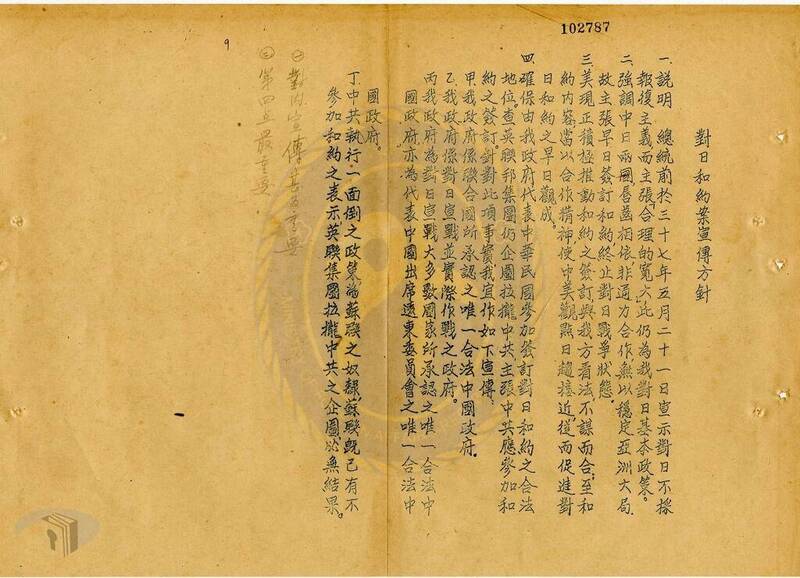 102787
對日和約案宣傳方針
一、說明 總統前於三十七年五月二十一日宣示對日不採
報復主義而主張「合理的寬大」此仍為我對日基本政策。
二、強調中日兩國唇齒相依、非通力合作、無以穩定亞洲大局.
故主張早日簽訂和約終止對日戰爭狀態。
三、美現正積極推動和約之簽訂與我方看法不謀而合、至和
約內容當以合作精神、使中美觀點日趨接近、從而促進對
日和約之早日觀成。
四、確保由我政府代表中華民國參加簽訂對日和約之合法
地位。查英聯邦集團仍企圖拉攏中共、主張中共應參加和
約之簽訂。針對此項事實、我宜作如下宣傳、
甲、我政府係聯合國所承認之唯一合法中國政府.
乙、我政府係對日宣戰並實際作戰之政府。
丙、我政府為對日宣戰大多數國家所承認之唯一合法中
國政府、亦為代表中國出席遠東委員會之唯一合法中
國政府。
丁、中共執行「一面倒」之政策、為蘇聯之奴隸、蘇聯既已有不
參加和約之表示、英聯集團拉攏中共之企圖、必無結果。
㊀ 對內宣傳甚為重要
㊁ 第四点最重要
9